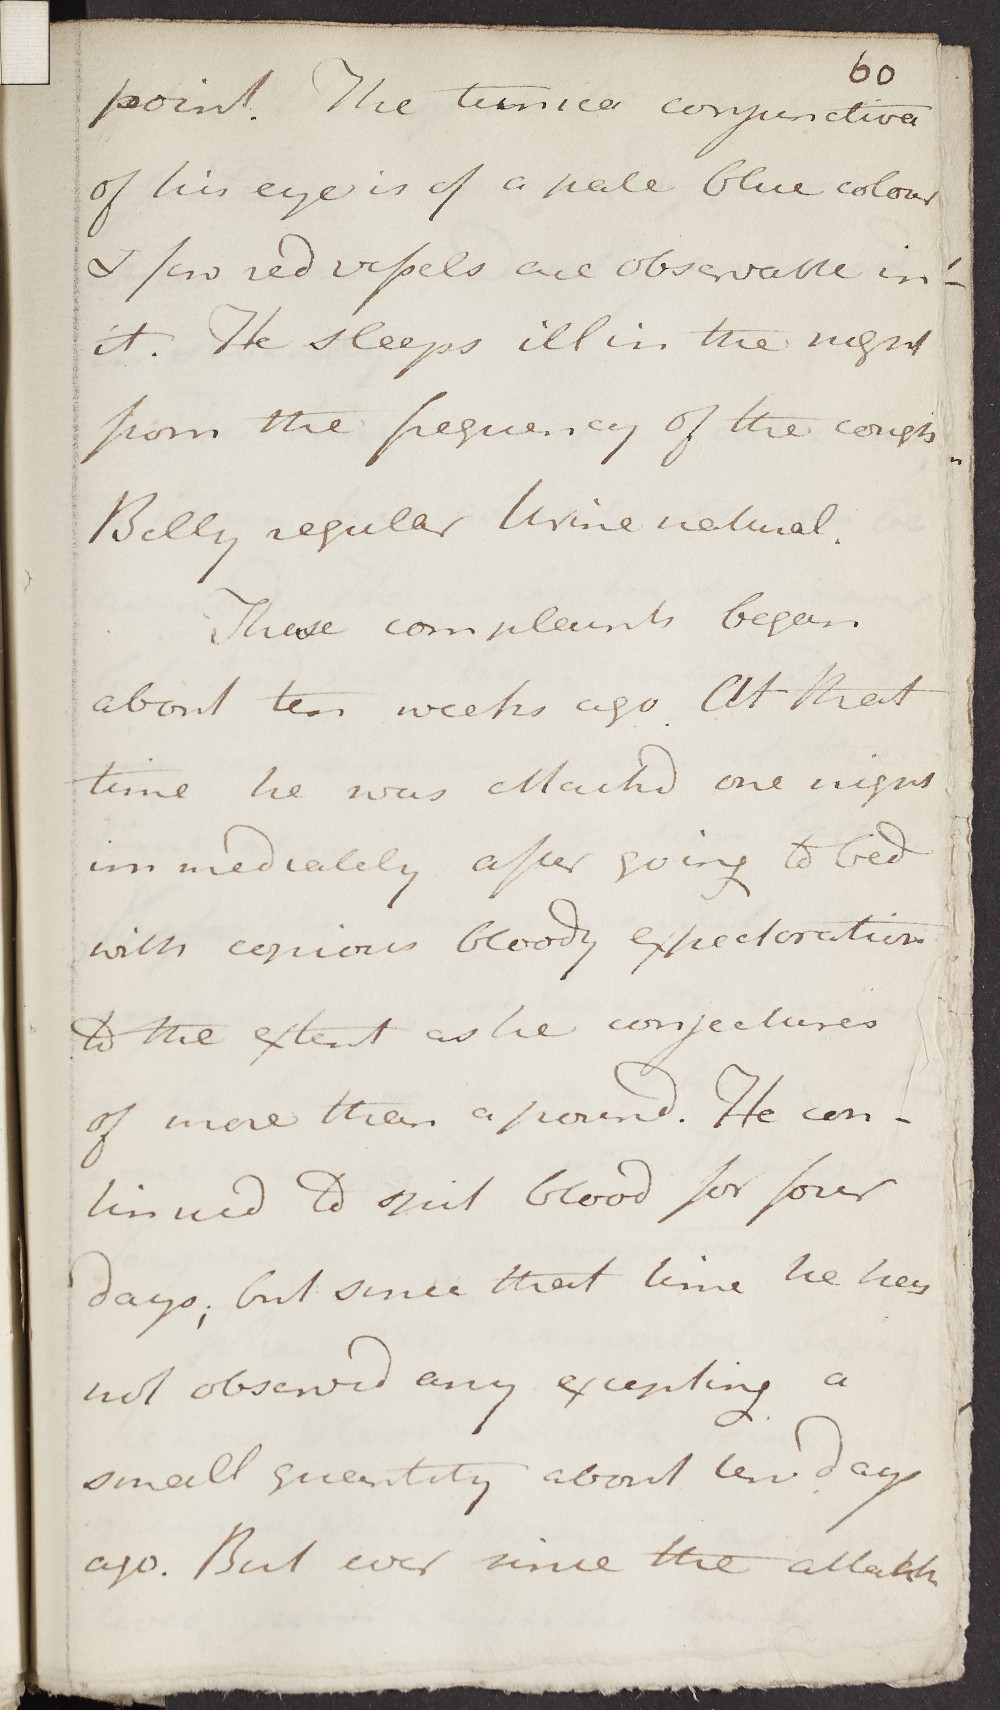 60
point. The tunica conjunctiva
of his eye is of a pale blue colour
& few red vessels are observable in
it. He sleeps ill in the night
from the frequency of the cough
Belly regular Urine natural.
These complaints began
about ten weeks ago. At that
time he was attackd one night
immediately after going to bed
with copious bloody expectoration
to the extent as he conjectures
of more than a pound. He con-
tinued to spit blood for four
days; but since that time he has
not observed any excepting a
small quantity about ten days
ago. But ever since the attack